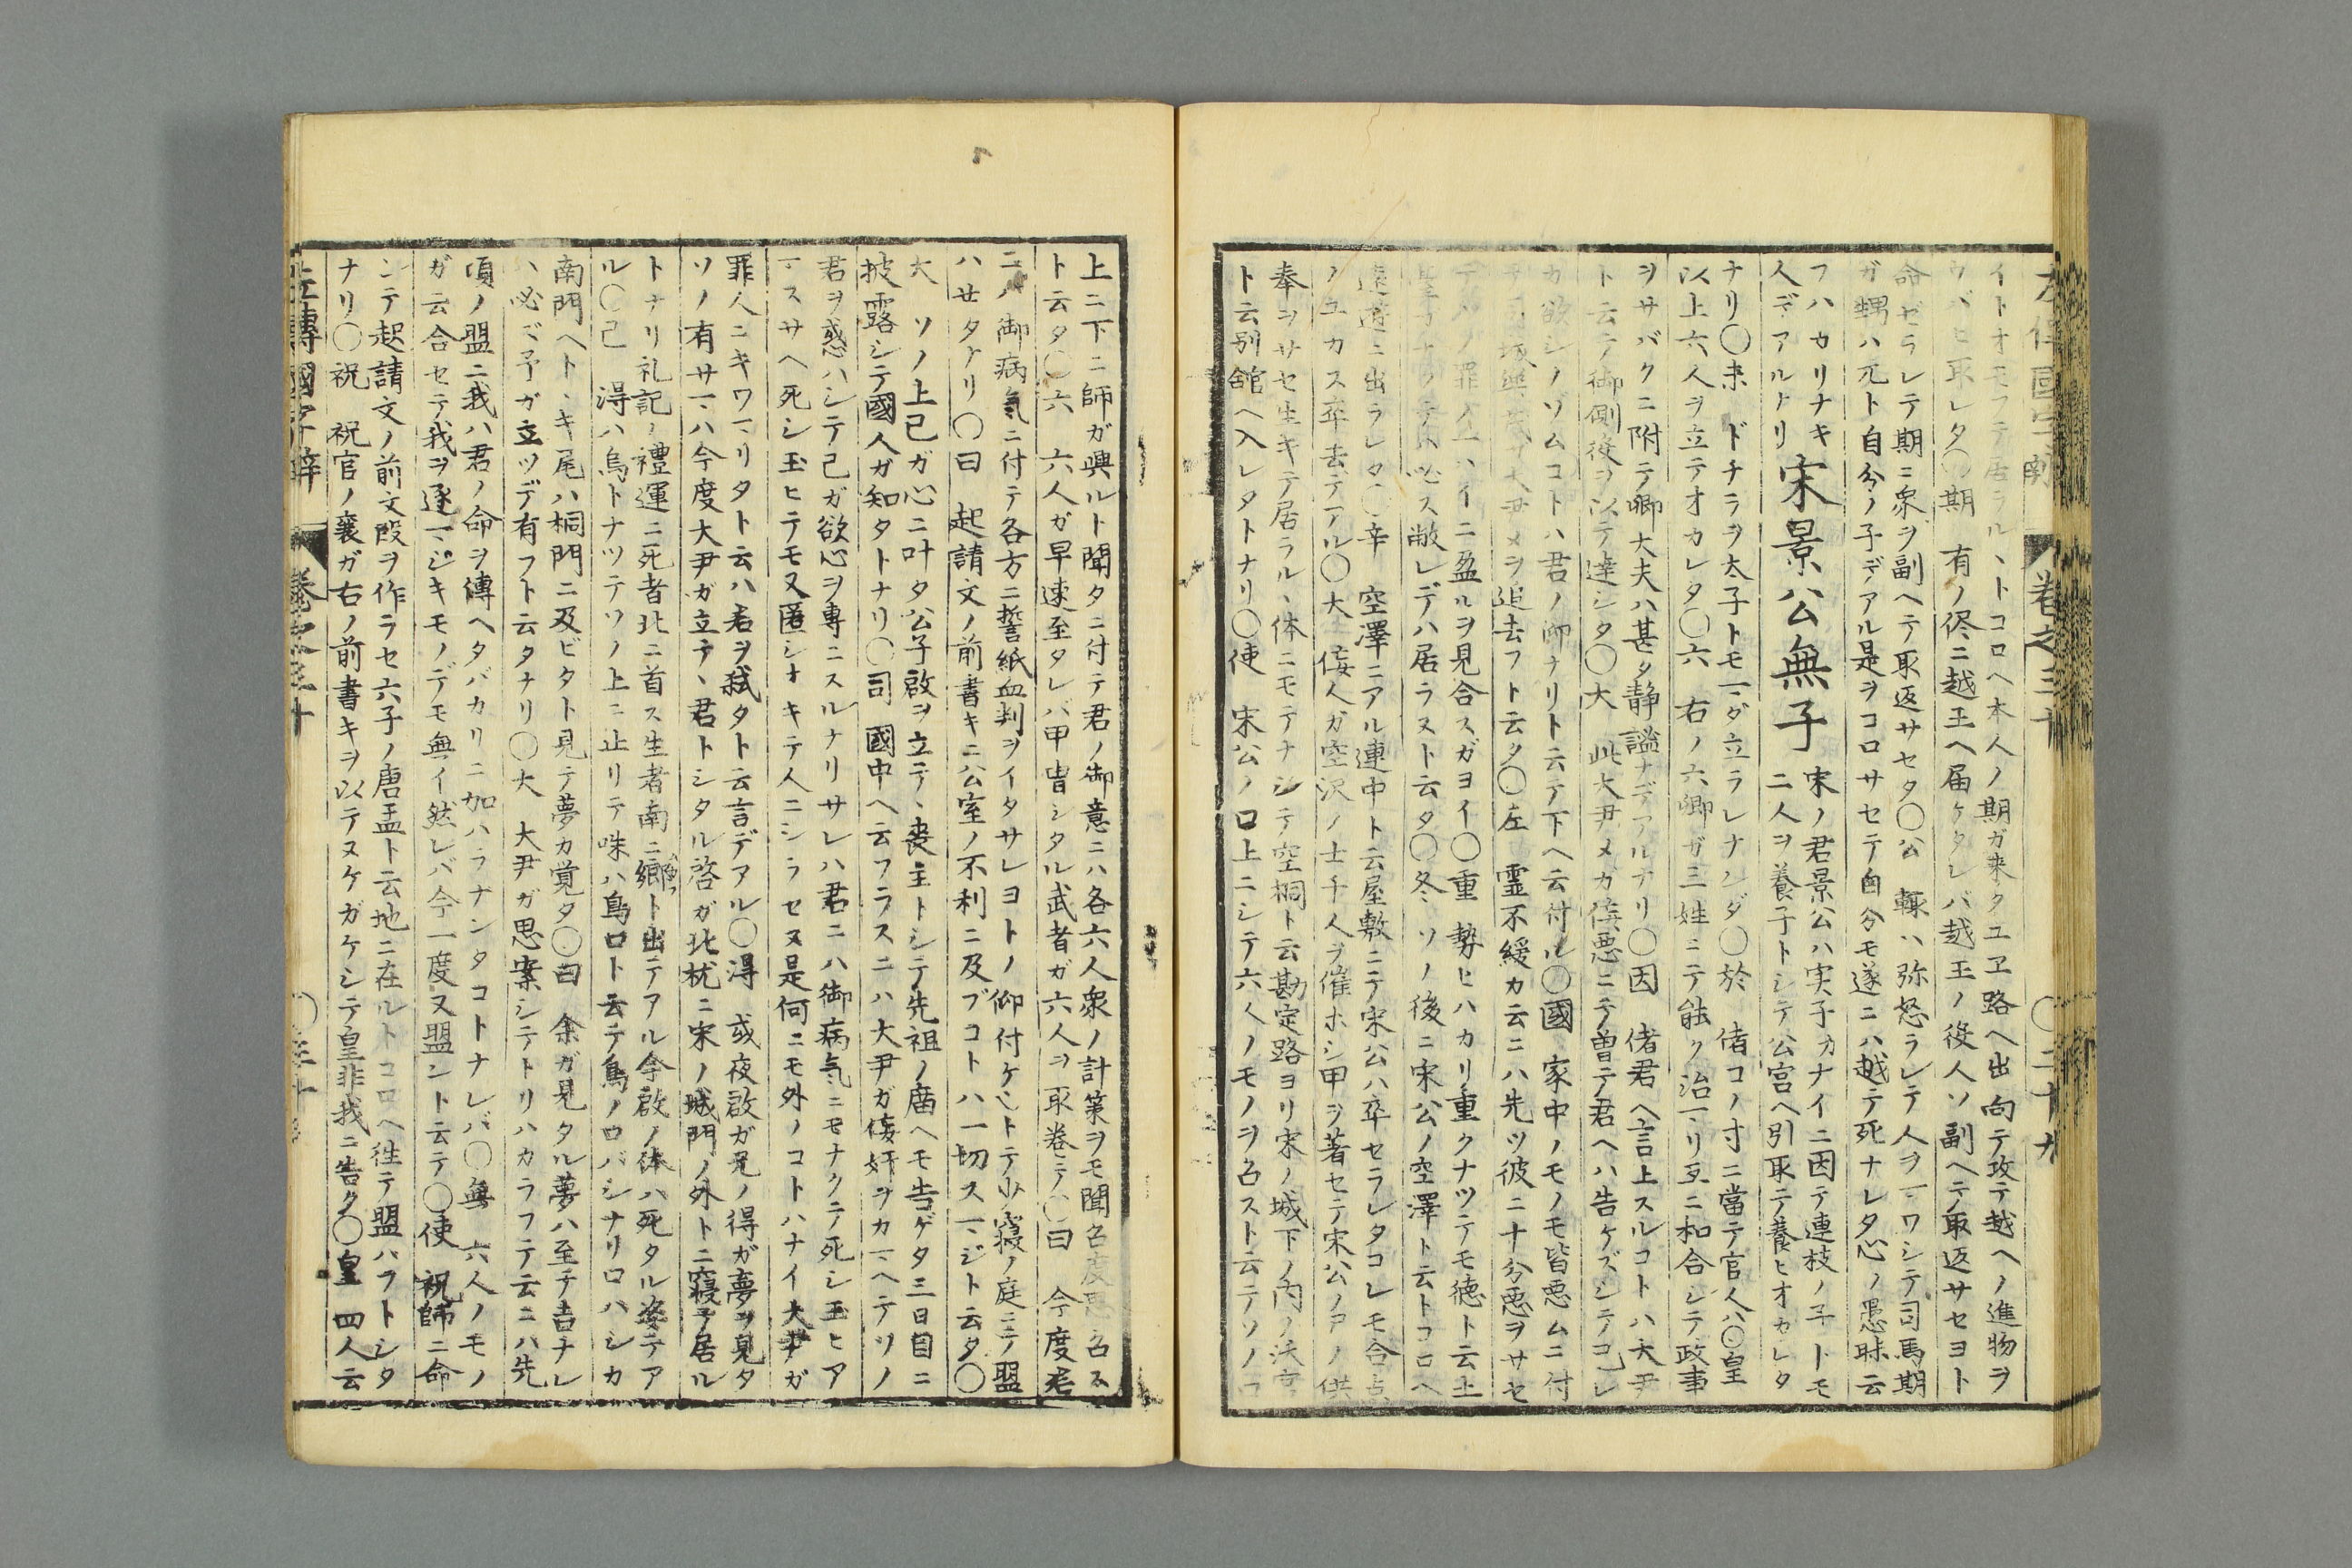 卷之三十 〇二十九
イトオモフテ居ラル丶トコロヘ本人ノ期ガ来タユヱ路ヘ出向テ攻テ越ヘノ進物ヲ
ウバヒ取レタ〇期 有ノ侭ニ越王ヘ届ケタレバ越王ノ役人ソ副ヘテ取返サセヨト
命ゼラレテ期ニ衆ヲ副ヘテ取返サセタ〇公 輙ハ弥怒ラレテ人ヲマワシテ司馬期
ガ甥ハ元ト自分ノ子デアル是ヲコロサセテ自分モ遂ニハ越テ死ナレタ心ノ愚昧云
フハカリナキ
人デアルナリ
宋景公無子
宋ノ君景公ハ実子カナイニ因テ連枝ノ子トモ
二人ヲ養子トシテ公宮ヘ引取テ養ヒオカレタ
ナリ〇未 ドチラヲ太子トモマダ立ラレナンダ〇於 偖コノ寸ニ當テ官人ハ〇皇
以上六人ヲ立テオカレタ〇六 右ノ六卿ガ三姓ニテ能ク治マリ互ニ和合シテ政事
ヲサバクニ附テ卿大夫ハ甚タ静謐ナデアルナリ〇因 偖君ヘ言上スルコトハ大尹
ト云テ御側後ヲ以テ達シタ〇大 此大尹メガ侫悪ニテ曽テ君ヘハ告ケズシテコレ
カ欲シノゾムコトハ君ノ御ナリト云テ下ヘ云付ル〇國 家中ノモノモ皆悪ムニ付
大尹メヲ追去フト云タ〇左 霊不緩カ云ニハ先ツ彼ニ十分悪ヲサセ
罪人一ハイニ盈ルヲ見合スガヨイ〇重 勢ヒハカリ重クナツテモ徳ト云土
必ス敝レデハ居ラヌト云タ〇冬 ソノ後ニ宋公ノ空澤ト云トコロヘ
遠遊ニ出ラレタ〇辛 空澤ニアル連中ト云屋敷ニテ宋公ハ卒セラレタコレモ合点
ノユカス卒去デアル〇大 侫人ガ空沢ノ士千人ヲ催ホシ甲ヲ著セテ宋公ノ尸ノ供
奉ヲサセ生キテ居ラル丶体ニモテナシテ空桐ト云勘定路ヨリ宋ノ城下ノ内ノ沃宮
ト云別舘ヘ入レタトナリ〇使 宋公ノ口上ニシテ六人ノモノヲ召スト云テソノ口
上ニ下ニ師ガ興ルト聞タニ付テ君ノ御意ニハ各六人衆ノ計策ヲモ聞召度思召ス
ト云タ〇六 六人ガ早速至タレバ甲冑シタル武者ガ六人ヲ取巻テ〇曰 今度老
ニハ御病氣ニ付テ各方ニ誓紙血判ヲイタサレヨトノ仰付ケレトテ小寝ノ庭ニテ盟
ハせタナリ〇曰 起請文ノ前書キニ公室ノ不利ニ及ブコトハ一切スマジト云タ〇
大 ソノ上己ガ心ニ叶タ公子啟ヲ立テ丶喪主トシテ先祖ノ廟ヘモ告ゲタ三日目ニ
披露シテ國人ガ知タトナリ〇司 國中ヘ云フラスニハ大尹ガ侫奸ヲカマヘテソノ
君ヲ惑ハシテ己ガ欲心ヲ専ニスルナリサレハ君ニハ御病氣ニモナクテ死シ玉ヒア
マスサヘ死シ玉ヒテモ又匿シオキテ人ニシラセヌ是何ニモ外ノコトハナイ大尹ガ
罪人ニキワマリタト云ハ君ヲ弑タト云言デアル〇得 或夜啟ガ兄ノ得ガ夢ヲ見タ
ソノ有サマハ今度大尹ガ立テ丶君トシタル啓ガ北枕ニ宋ノ城門ノ外トニ寝テ居ル
トナリ礼記ノ禮運ニ死者北ニ首ス生者南ニ郷ト出テアル今啟ノ体ハ死タル姿テア
ル〇己 得ハ烏トナツテソノ上ニ止リテ咮ハ鳥口ト云テ鳥ノロバシナリロハシカ
南門ヘト丶キ尾ハ桐門ニ及ビタト見テ夢カ覚タ〇曰 余ガ見タル夢ハ至テ吉ナレ
ハ必ズ予ガ立ツデ有フト云タナリ〇大 大尹ガ思案シテトリハカラフテ云ニハ先
頃ノ盟ニ我ハ君ノ命ヲ傳ヘタバカリニ加ハラナンタコトナレバ〇無 六人ノモノ
ガ云合セテ我ヲ逐マジキモノデモ無イ然レバ今一度又盟ント云テ〇使 祝師ニ命
ンテ起請文ノ前文段ヲ作ラセ六子ノ唐盂ト云地ニ在ルトコロヘ徃テ盟ハフトシタ
ナリ〇祝 祝官ノ襄ガ右ノ前書キヲ以テヌケガケシテ皇非我ニ告タ〇皇 四人云
左傳國字辯 卷之三十 〇三十